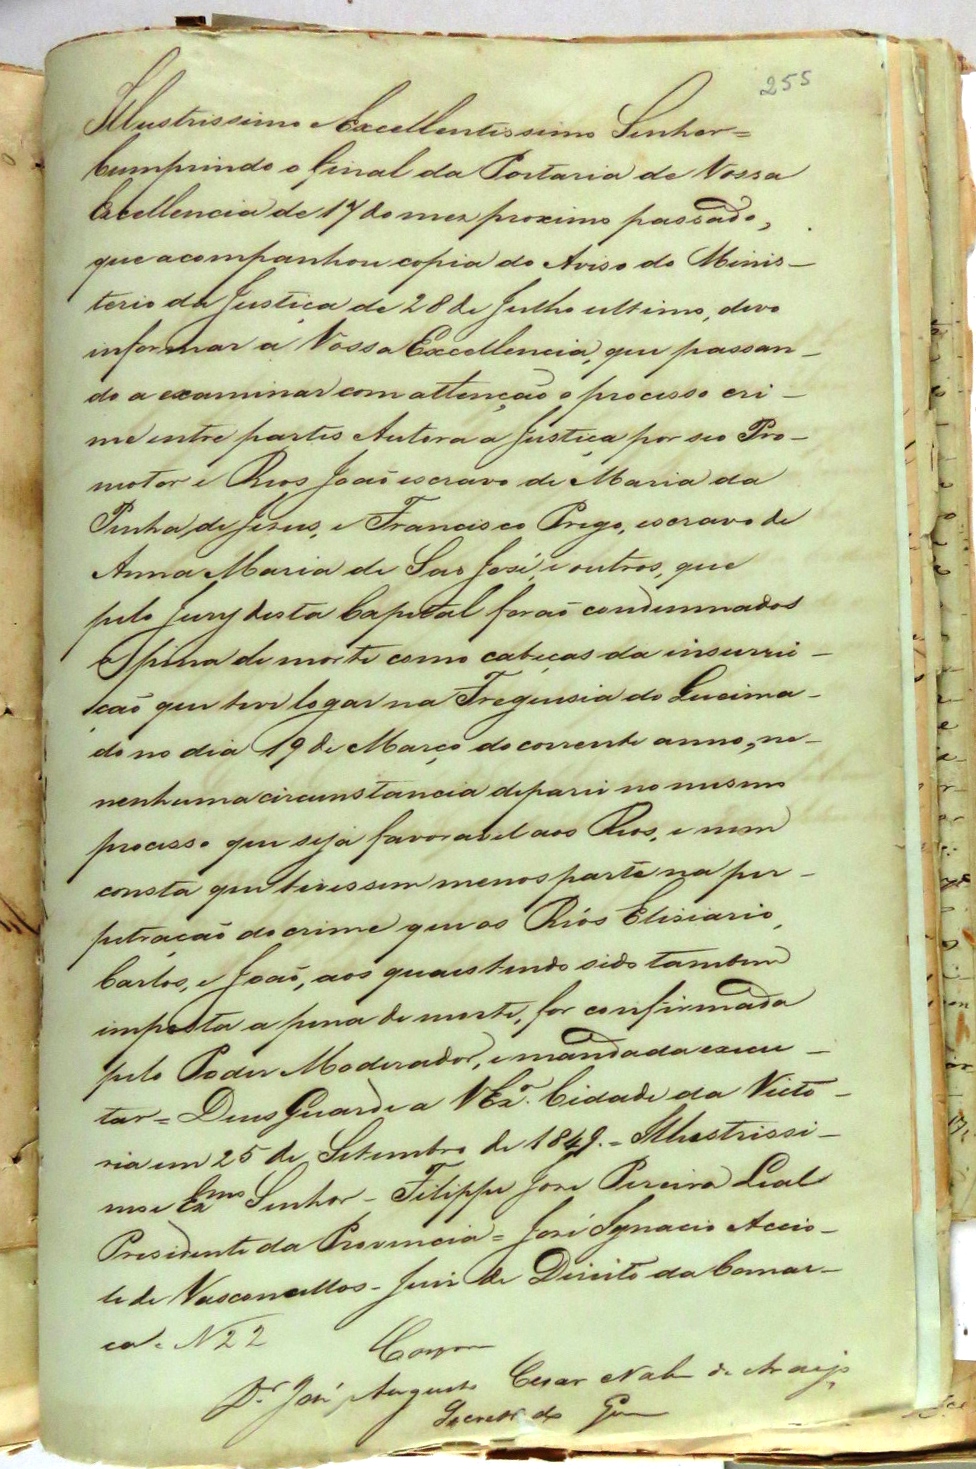 255
Illustrissimo e Excellentissimo Senhor =
Cumprindo o final da Portaria de Vossa
Excellencia de 17 do mez proximo passado,
que acompanhou copia do Aviso do Minis-
terio da Justiça de 28 de Julho ultimo, devo
informar a Vossa Excellencia, que passan-
do a examinar com attenção o processo cri-
me entre partes Autora a Justiça por seo Pro-
motor e Reos João escravo de Maria da
Penha de Jesus, e Francisco Prego, escravo de
Anna Maria de São José, e outros, que
pelo Jury desta Capital forão condemnados
a pena de morte como cabeças da insurrei-
ção que teve logar na Freguesia do Queima-
do no dia 19 de Março do corrente anno, ne-
nenhuma circunstancia deparei no mesmo
processo que seja favoravel aos Reos, e nem
consta que tivessem menos parte na per-
petração do crime que os Réos Elisiario,
Carlos, e João, aos quaes tendo sido tambem
imposta a pena de morte, for confirmada
pelo Poder Moderador, e mandada execu-
tar = Deos Guarde a V Exª. Cidade da Victo-
ria em 25 de Setembro de 1849. = Illustrissi-
mo e Exmo Senhor - Filippe José Pereira Leal
Presidente da Provincia = José Ignacio Accio-
li de Vasconcellos - Juiz de Direito da Comar-
ca. N 22
Dr. José Augusto Cesar Nab de Araujo
Secretº do Gov